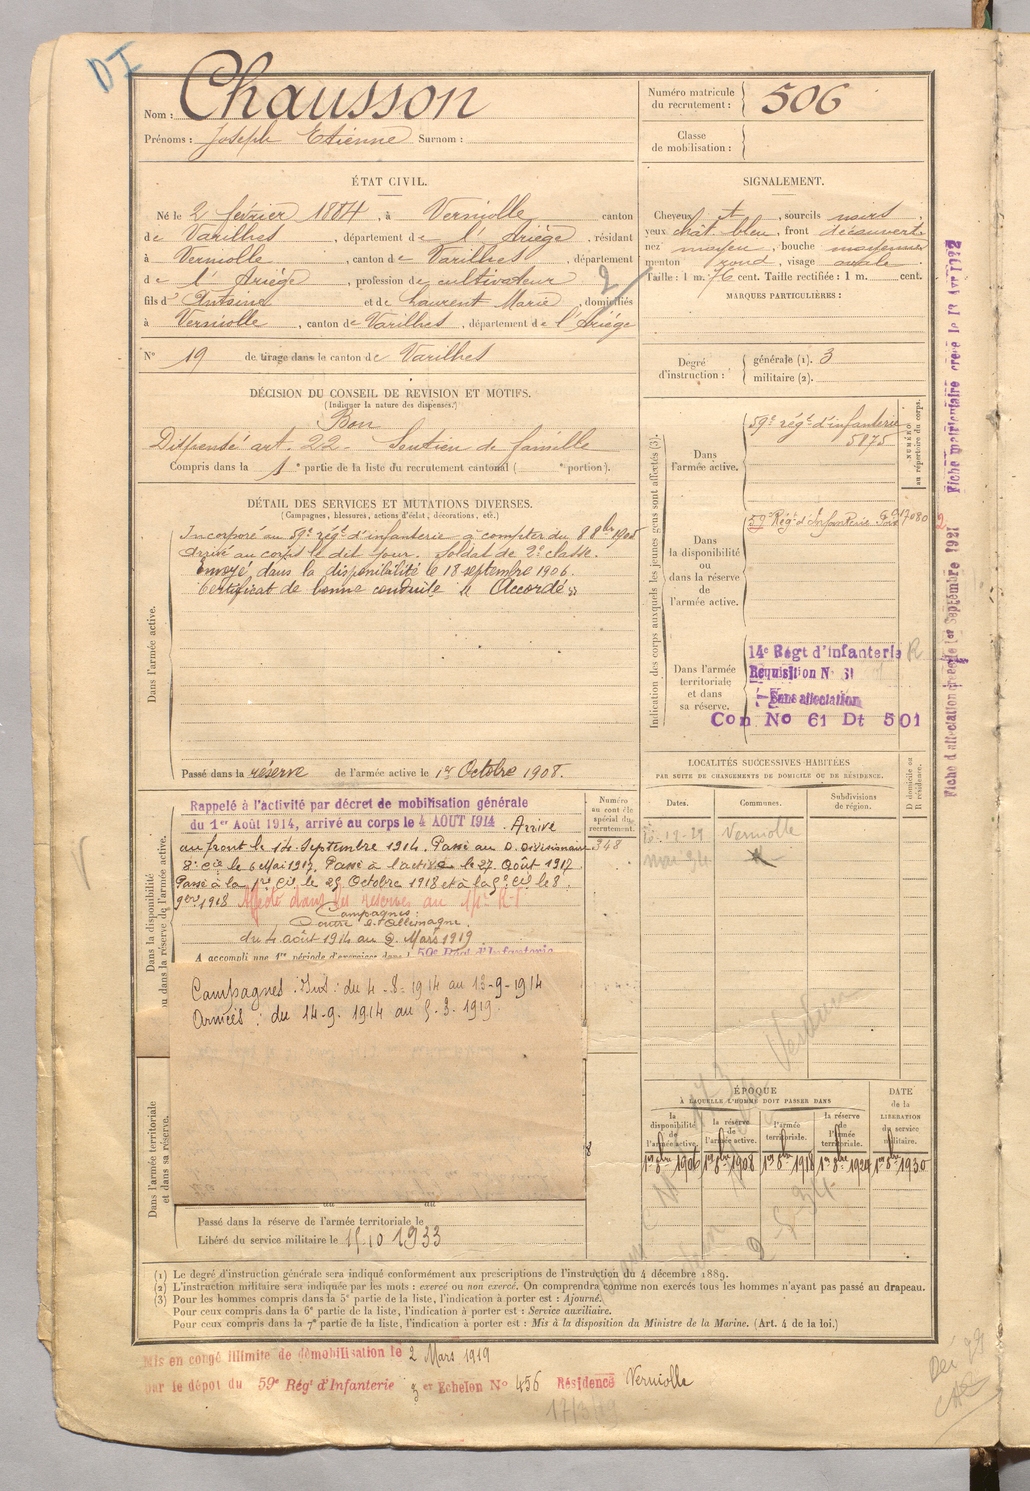 D I
Nom : Chausson
Prénoms : Joseph Etienne Surnom :
Numéro matricule du recrutement : 506
Classe de mobilisation :
ÉTAT CIVIL.
Né le 2 février 1884, à Verniolle canton
de Varilhes, département de l'Ariège, résidant
à Verniolle, canton de Varilhes, département
de l'Ariège, profession de cultivateur
fils d' Antoine et de Laurent Marie, domiciliés
à Verniolle, canton de Varilhes, département de l'Ariège
2
N° 19 de tirage dans le canton de Varilhes
SIGNALEMENT.
Cheveux et, sourcils noirs
yeux chât. bleu, front découvert
nez moyen, bouche moyenne
menton rond, visage ovale
Taille : 1 m. 76 cent. Taille rectifiée : 1 m. cent.
MARQUES PARTICULIÈRES :
Degré d'instruction : générale (1). 3
militaire (2).
DÉCISION DU CONSEIL DE REVISION ET MOTIFS.
(Indiquer la nature des dispenses.)
Bon
Dispensé art. 22 - Soutien de famille
Compris dans la 1e partie de la liste du recrutement cantonal ( e portion).
DÉTAIL DES SERVICES ET MUTATIONS DIVERSES.
(Campagnes, blessures, actions d'éclat, décorations, etc.)
Dans l'armée active.
Incorporé au 59e régt d'infanterie à compter du 8 8bre 1905
Arrivé au corps le dit jour. Soldat de 2e classe.
Envoyé dans la disponibilité le 18 septembre 1906.
Certificat de bonne conduite "Accordé"
Passé dans la réserve de l'armée active le 1er Octobre 1908.
Dans la disponibilité ou dans la réserve de l'armée active.
Rappelé à l'activité par décret de mobilisation générale
du 1er Août 1914, arrivé au corps le 4 AOUT 1914. Arrivé
au front le 14 Septembre 1914. Passé au D. Divisionnaire
8e Cie le 6 Mai 1917. Passé à l'active le 27 Août 1917
Passé à la 1re Cie le 25 Octobre 1918 et à la 9e Cie le 8
9bre 1918 Affecté dans les réserves au 14e R.I
Campagnes :
Contre l'Allemagne
du 4 août 1914 au 2 Mars 1919
A accompli une 1re période d'exercices dans l 59e Régt d'Infanterie
Campagnes : Int : du 4-8-1914 au 13-9-1914
Armées : du 14-9-1914 au 5-3-1919
Dans l'armée territoriale et dans sa réserve.
Passé dans la réserve de l'armée territoriale le
Libéré du service militaire le 15.10 1933
Numéro au contrôle spécial du recrutement.
348
Indication des corps auxquels les jeunes gens sont affectés (3).
NUMÉRO au répertoire du corps.
Dans l'armée active.
59e régt d'infanterie
5875
Dans la disponibilité ou dans la réserve de l'armée active.
59e Régt d'Infanterie
Dans l'armée territoriale et dans sa réserve.
14e Régt d'infanterie
Réquisition N° 61
Sans affectation
Con No 61 Dt 501
LOCALITÉS SUCCESSIVES HABITÉES
PAR SUITE DE CHANGEMENTS DE DOMICILE OU DE RÉSIDENCE.
Dates.
Communes.
Subdivisions de région.
D domicile ou R résidence.
Verniolle
ÉPOQUE
À LAQUELLE L'HOMME DOIT PASSER DANS
la disponibilité de l'armée active.
la réserve de l'armée active.
l'armée territoriale.
la réserve de l'armée territoriale.
DATE de la LIBÉRATION du service militaire.
1er 8bre 1906 1er 8bre 1908 1er 8bre 1918 1er 8bre 1924 1er 8bre 1930
Verdun
(1) Le degré d'instruction générale sera indiqué conformément aux prescriptions de l'instruction du 4 décembre 1889.
(2) L'instruction militaire sera indiquée par les mots : exercé ou non exercé. On comprendra comme non exercés tous les hommes n'ayant pas passé au drapeau.
(3) Pour les hommes compris dans la 5e partie de la liste, l'indication à porter est : Ajourné.
Pour ceux compris dans la 6e partie de la liste, l'indication à porter est : Service auxiliaire.
Pour ceux compris dans la 7e partie de la liste, l'indication à porter est : Mis à la disposition du Ministre de la Marine. (Art. 4 de la loi.)
Mis en congé illimité de démobilisation le 2 Mars 1919
par le dépôt du 59e Régt d'Infanterie 3 er Echelon N° 456 Résidence Verniolle
Fiche d'affectation créée le 1er Septembre 1921
Fiche matriculaire créée le